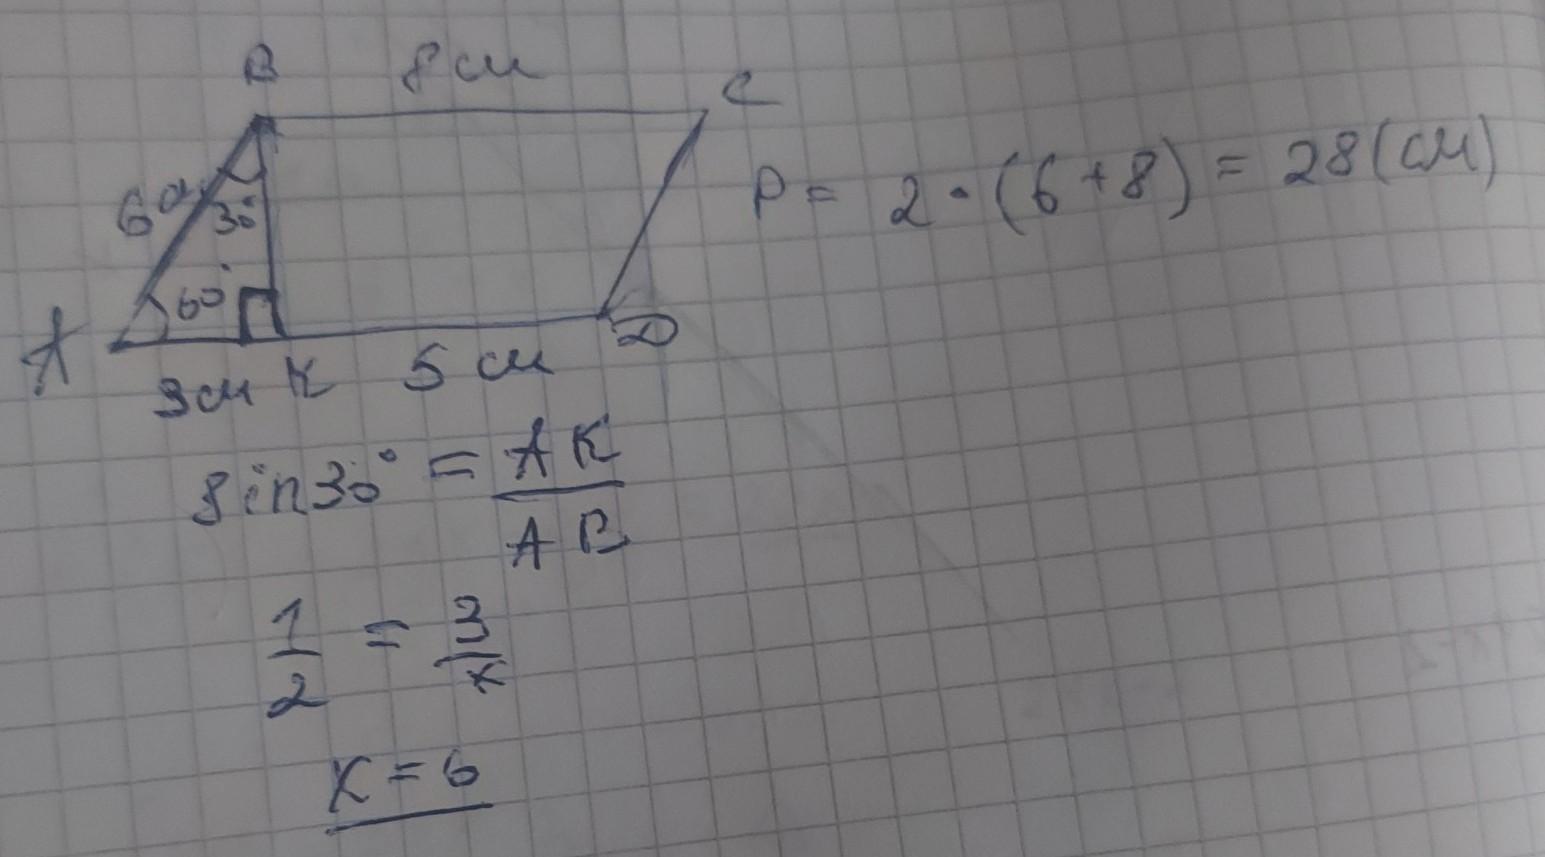 B 8 см C
6 см 30°
60°
A 3 см K 5 см D
P = 2 · (6 + 8) = 28 (см)
sin30° = AK / AB
1/2 = 3/x
x = 6